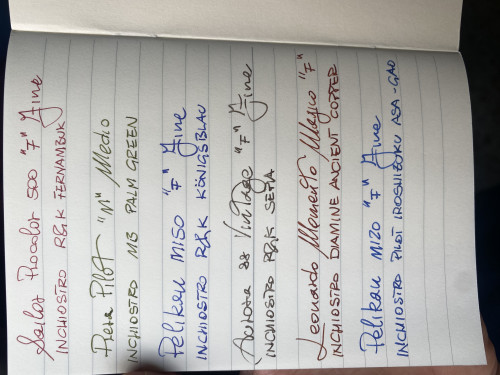 Sailor Procolor 500 "F" Fine
INCHIOSTRO R&K FERNAMBUK
Prera Pilot "M" Medio
INCHIOSTRO MB PALM GREEN
Pelikan M150 "F" Fine
INCHIOSTRO R&K KÖNIGSBLAU
Aurora 88 Vintage "F" Fine
INCHIOSTRO R&K SEPIA
Leonardo Momento Magico "F"
INCHIOSTRO DIAMINE ANCIENT COPPER
Pelikan M120 "F" Fine
INCHIOSTRO PILOT IROSHIZUKU ASA-GAO